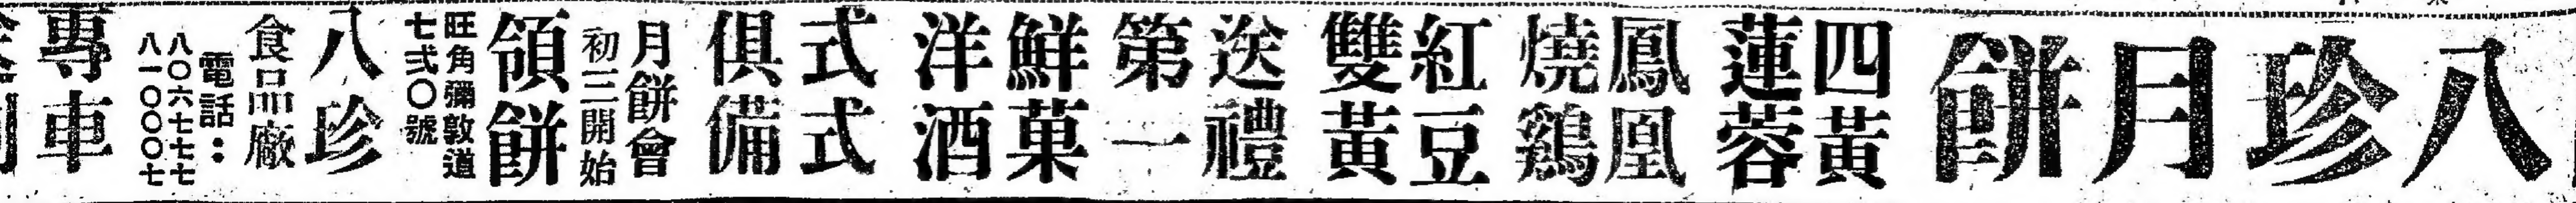 八珍月餅
四黃
蓮蓉
鳳凰
燒鷄
紅豆
雙黃
送禮
第一
鮮菓
洋酒
式式
俱備
月餅會
初三開始
領餅
旺角彌敦道
七弍〇號
八珍
食品廠
電話：
八〇六七七七
八一〇〇〇七
專車